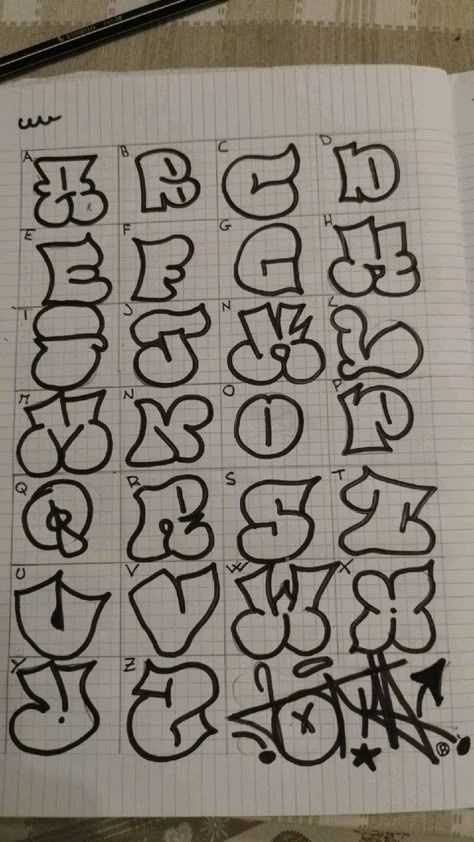 A B C D
E F G H
I J K L
M N O P
Q R S T
U V W X
Y Z
®